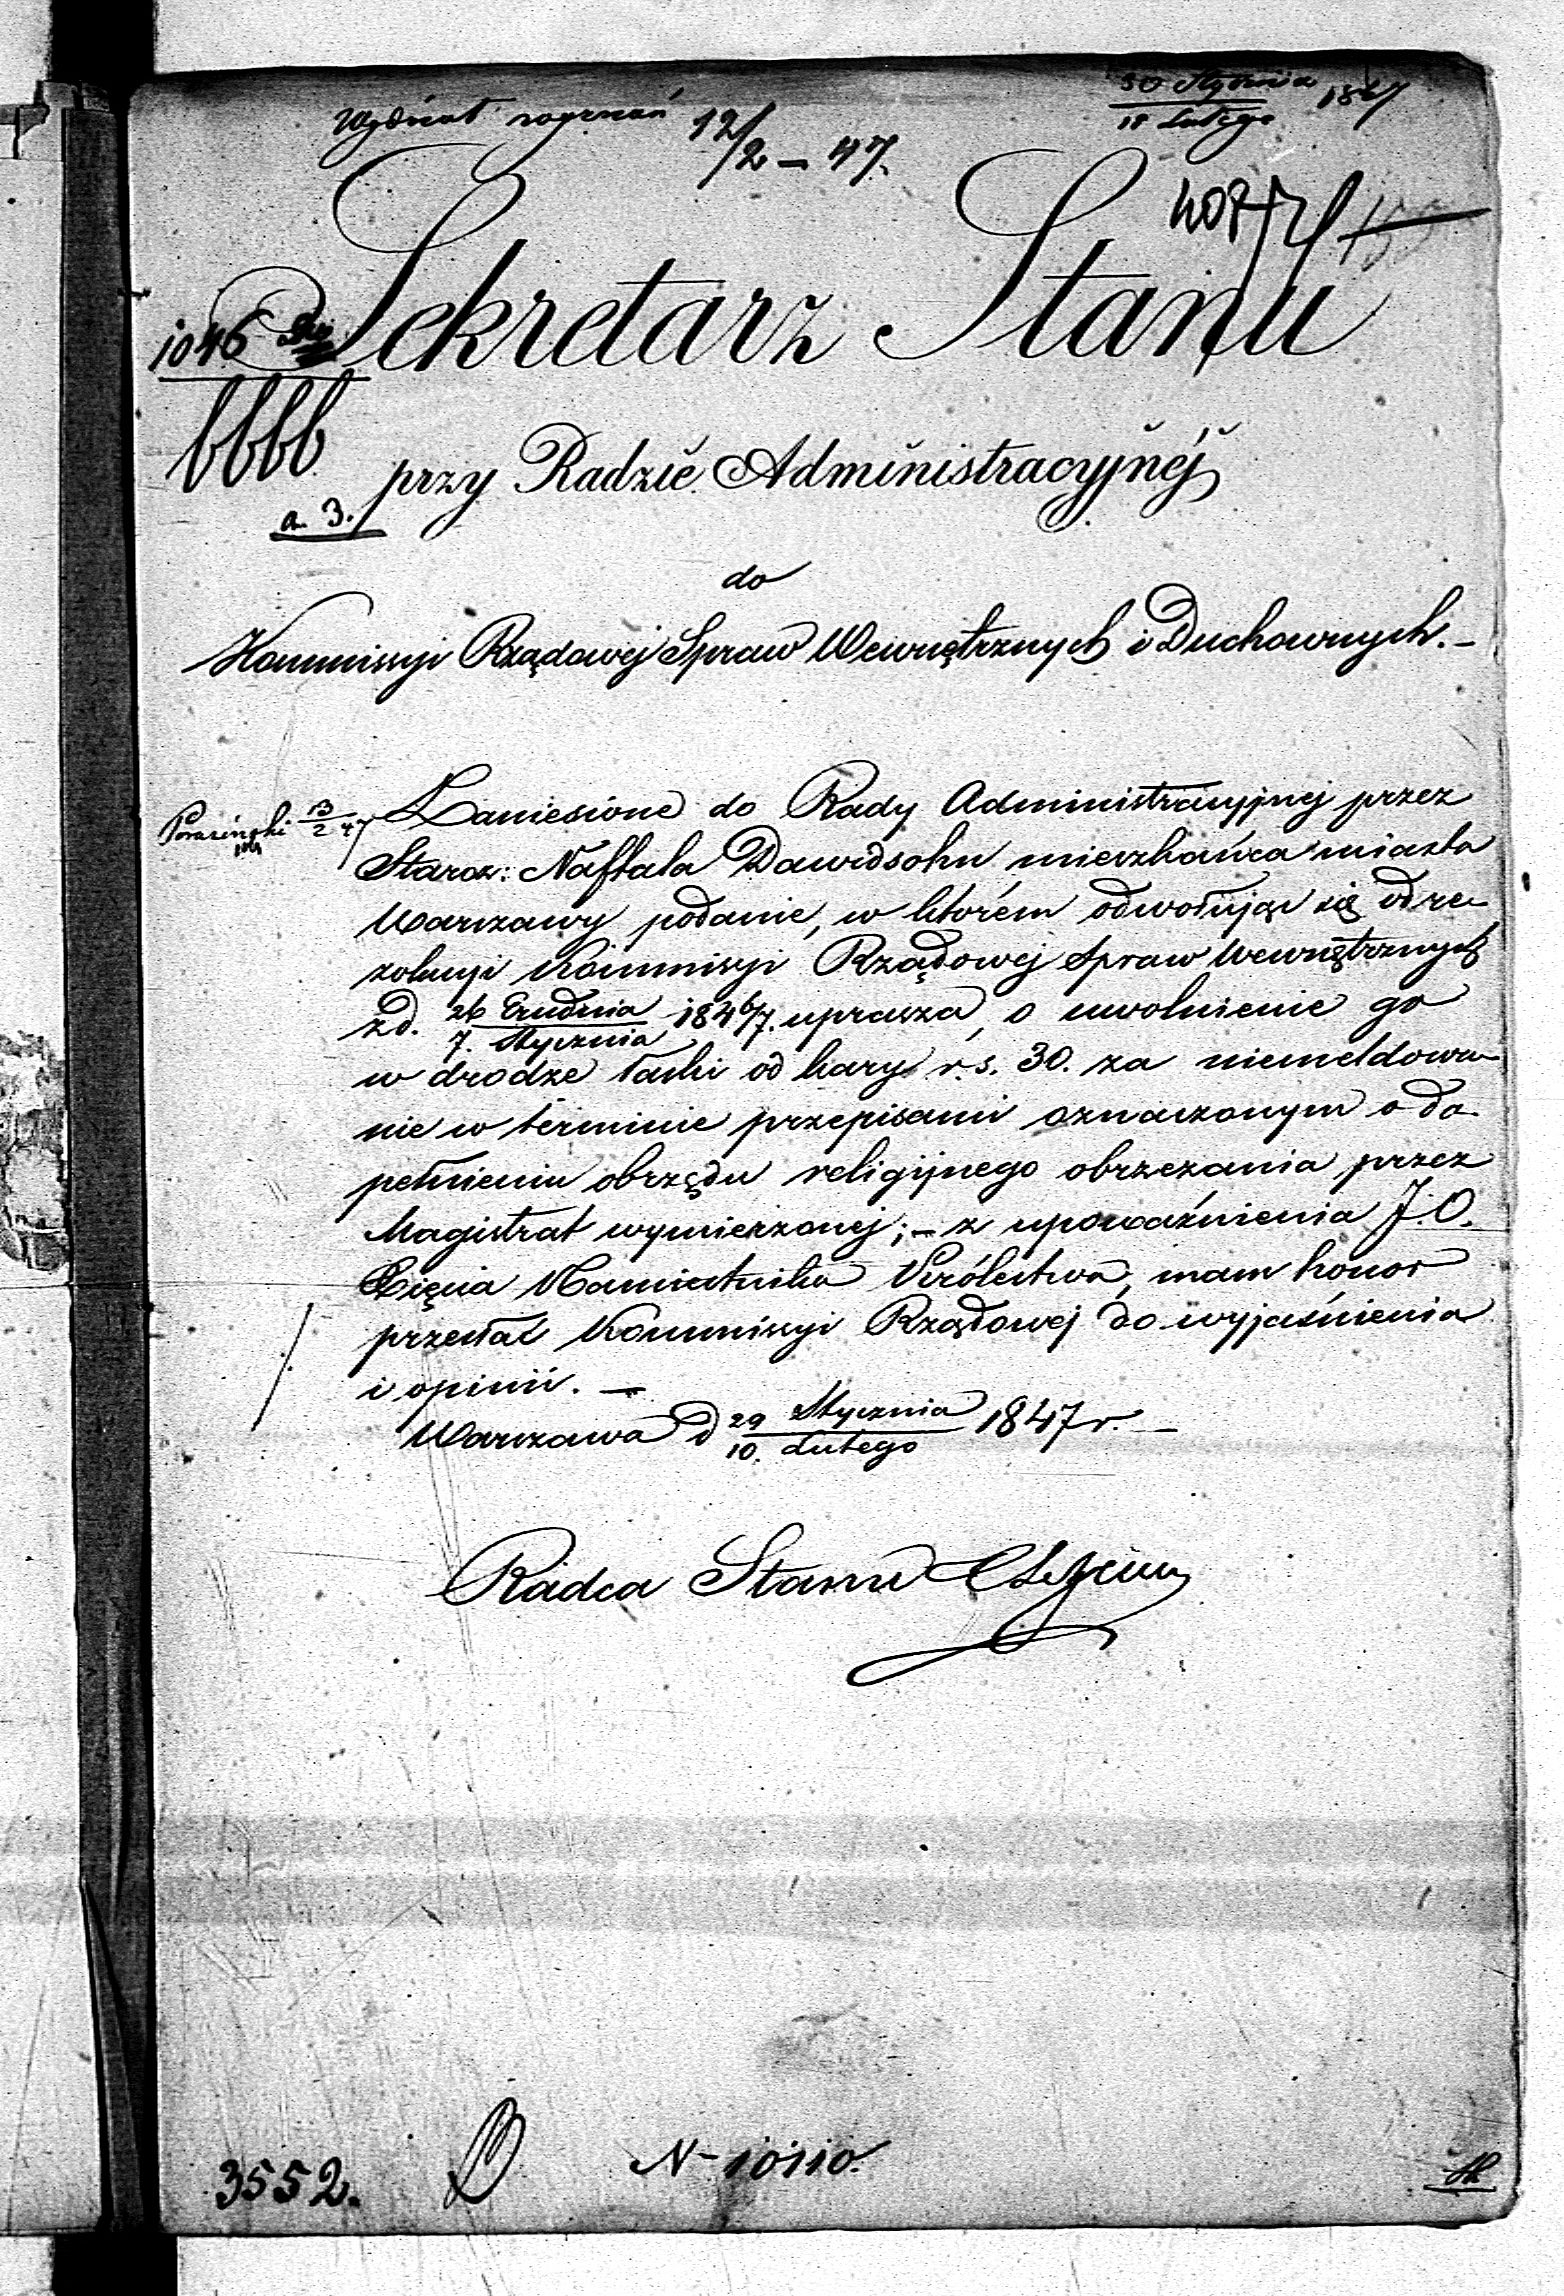 30 Stycznia 1847
11 Lutego
Wydział wyznań 12/2 – 47.
Sekretarz Stanu
1046
bbbb
przy Radzie Administracyjnéj
a. 3.
do
Kommissyi Rządowéj Spraw Wewnętrznych i Duchownych. –
Zaniesione do Rady Administracyjnej przez
Staroz: Naftala Dawidsohn mieszkańca miasta
Warszawy podanie, w którém odwołując się od re-
zolucyi Kommissyi Rządowéj Spraw Wewnętrznych
z d. 26 Grudnia 1846/7. uprasza, o uwolnienie go
7. Stycznia
w drodze łaski od kary r. s. 30. za niemeldowa-
nie w terminie przepisami oznaczonym o do-
pełnieniu obrzędu religijnego obrzezania przez
Magistrat wymierzonej; – z upoważnienia J. O.
Xięcia Namiestnika Królestwa, mam honor
przesłać Kommissyi Rządowej do wyjaśnienia
i opinii. –
Warszawa d 29 Stycznia 1847 r. –
10. Lutego
Radca Stanu
3552.
N– 10110.